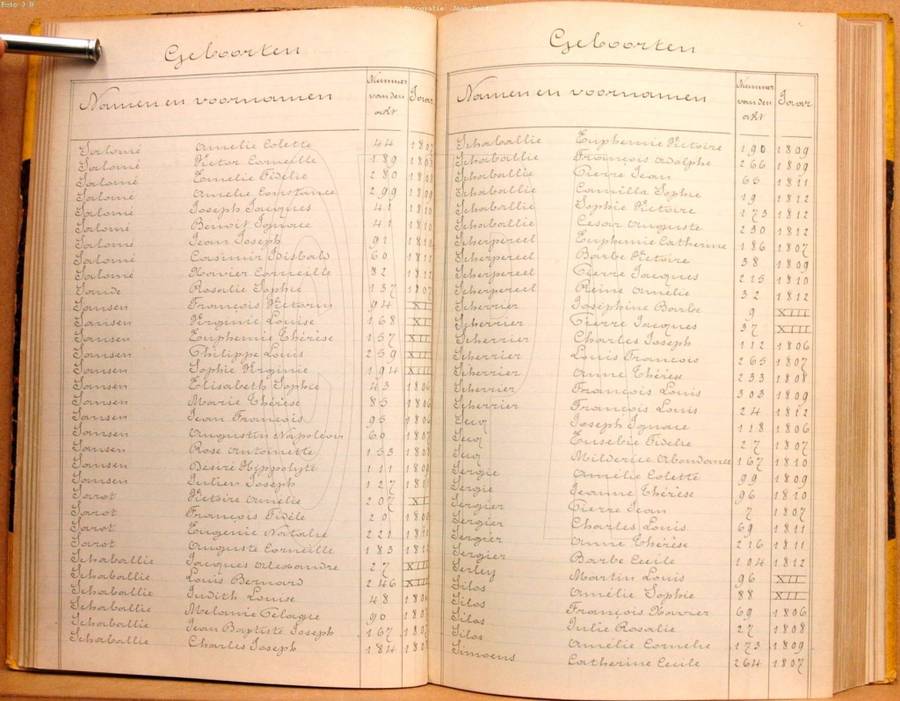 Geboorten
Namen en voornamen
Nummer van den akt
Jaar
Salomé Amelie Colette 44
Salomé Victor Corneille 189
Salomé Emelie Fidélie 280
Salomé Amelie Constance 299
Salomé Joseph Jacques 41
Salomé Benoit Ignace 41
Salomé Jean Joseph 91
Salomé Casimir 60
Salomé Xavier Corneille 82
Rosalie Sophie 137
Sansen François Victorin 94
Sansen Virginie Louise 168
Sansen Euphemie Thérèse 157
Sansen Philippe Louis 259
Sansen Sophie Virginie 194
Sansen Elisabeth Sophie 43
Sansen Marie Thérèse 85
Sansen Jean François 95
Sansen Augustin Napoléon 60
Sansen Rose Antoinette 153
Sansen Desiré Hippolyte 111
Sansen Julien Joseph 127
Sarot Victoire Amelie 207
Sarot François Fidèle 20
Sarot Eugenie Natalie 221
Sarot Auguste Corneille 183
Schaballie Jacques Alexandre 27
Schaballie Louis Bernard 246
Schaballie Judith Louise 48
Schaballie Melanie Pélagie 90
Schaballie Jean Baptiste Joseph 167
Schaballie Charles Joseph 184
Geboorten
Namen en voornamen
Nummer van den akt
Jaar
Schaballie Euphemie Victoire 190 1809
Schaballie François Adolphe 266 1809
Schaballie Pierre Jean 65 1811
Schaballie Camilla Sophie 19 1812
Schaballie Sophie Victoire 173 1812
Schaballie Cesar Auguste 230 1812
Scherpereel Euphemie Catherine 186 1807
Scherpereel Barbe Victoire 38 1809
Scherpereel Pierre Jacques 215 1810
Scherpereel Reine Amélie 32 1812
Scherrier Josephine Barbe 9 XIII
Scherrier Pierre Jacques 37 XIII
Scherrier Charles Joseph 112 1806
Scherrier Louis François 265 1807
Scherrier Anne Thérèse 233 1808
Scherrier François Louis 303 1809
Scherrier François Louis 24 1812
Joseph Ignace 118 1806
Eusebie Fidélie 27 1807
Milderice Abondance 167 1810
Sergie Amélie Colette 99 1809
Sergie Jeanne Thérèse 96 1810
Sergier Pierre Jean 7 1807
Sergier Charles Louis 69 1811
Sergier Anne Thérèse 216 1811
Sergier Barbe Cecile 104 1812
Serley Martin Louis 96 XII
Silos Amélie Sophie 88 XII
Silos François Xavier 69 1806
Silos Julie Rosalie 27 1808
Silos Amélie Cornelie 173 1809
Simoens Catherine Cecile 264 1807